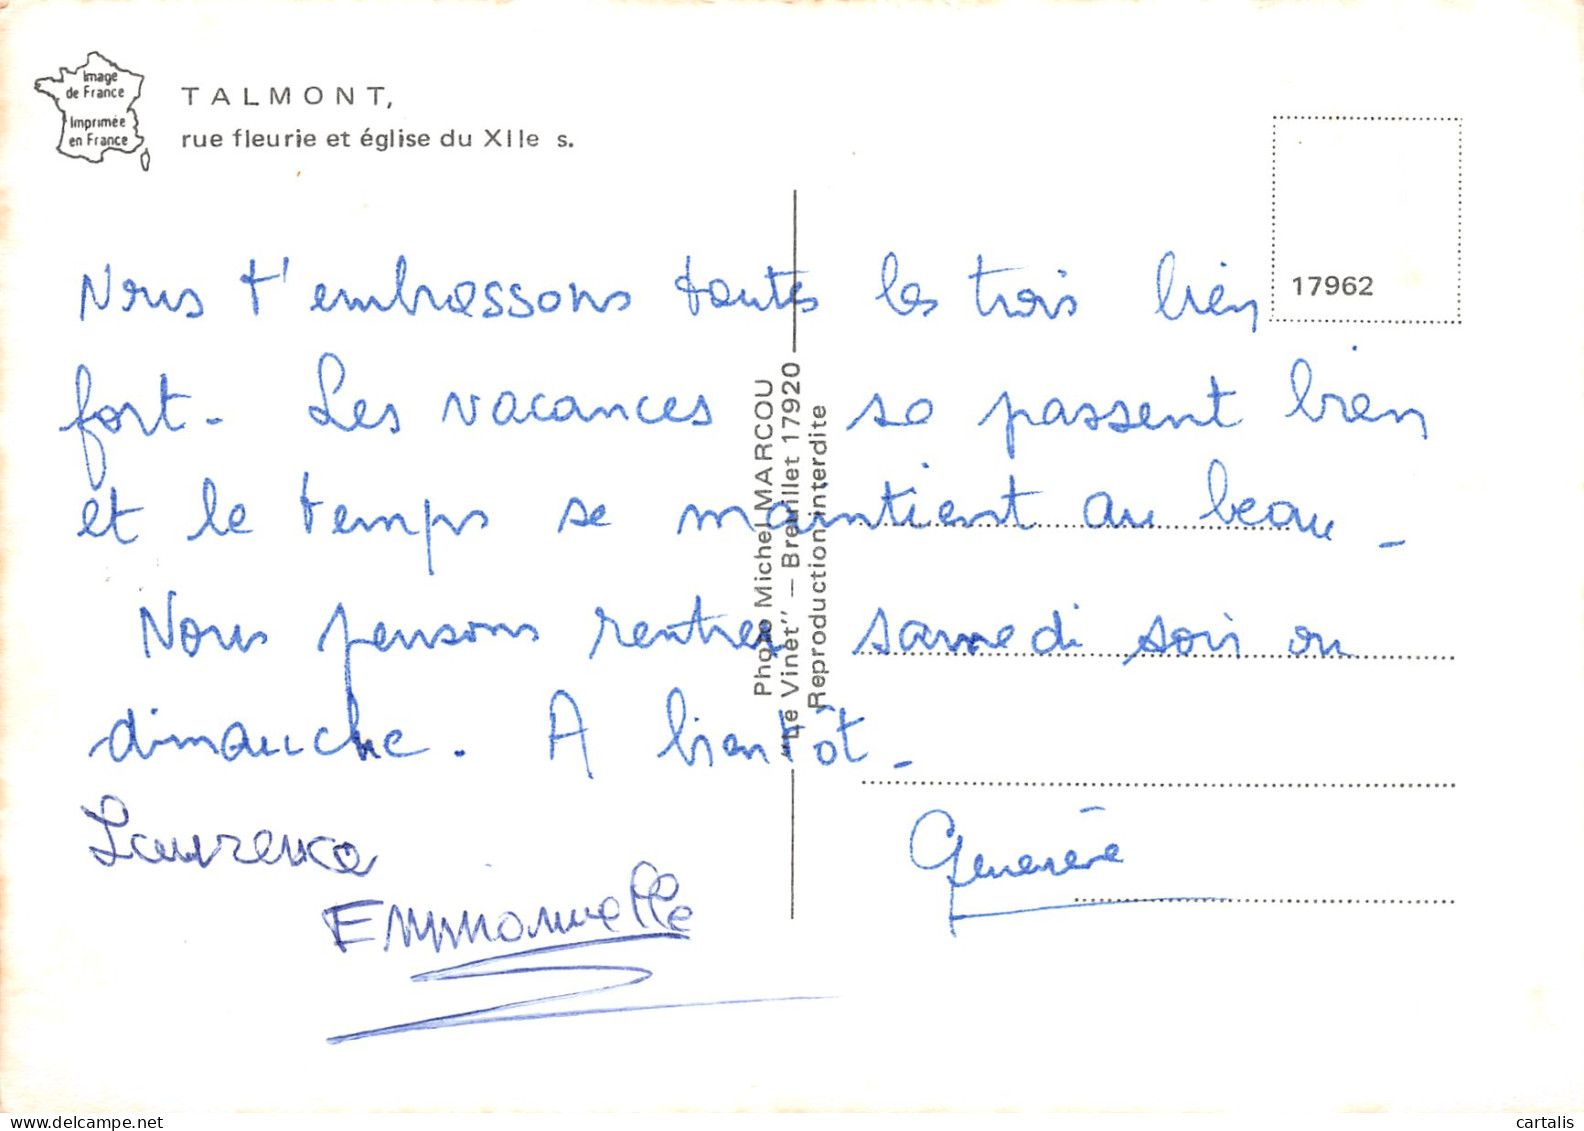 Image
de France
Imprimée
en France
TALMONT,
rue fleurie et église du XIIe s.
17962
Nous t'embrassons toutes les trois bien
fort. Les vacances se passent bien
et le temps se maintient au beau.
Nous pensons rentrer samedi soir ou
dimanche. A bientôt.
Laurence
Emmanuelle
Geneviève
Photo Michel MARCOU
"Le Vinet" — Breuillet 17920
Reproduction interdite
cartalis